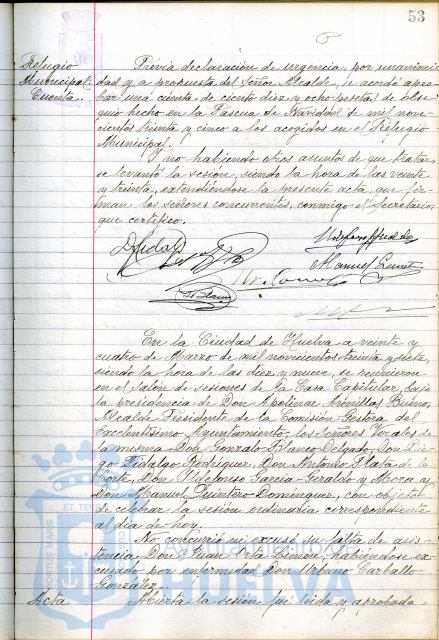 53
Refugio
Municipal
Cuenta.
Prévia declaración de urgencia, por unanimi
dad y a propuesta del Señor Alcalde, se acordó apro
bar una cuenta de ciento diez y ocho pesetas de obse
quio hecho en la Pascua de Navidad de mil nove-
cientos treinta y cinco a los acogidos en el Refugio
Municipal.
Y no habiendo otros asuntos de que tratar,
se levantó la sesión, siendo la hora de las veinte
y treinta, extendiéndose la presente acta, que fir-
man los señores concurrentes, conmigo el Secretario,
que certifico.
En la Ciudad de Huelva a veinte y
cuatro de Marzo de mil novecientos treinta y siete,
siendo la hora de las diez y nueve, se reunieron
en el Salón de sesiones de la Casa Capitular, bajo
la presidencia de Don Apolinar Arenillas Bueno,
Alcalde Presidente de la Comisión Gestora del
Excelentísimo Ayuntamiento, los Señores Vocales de
la misma Don Gonzalo Blanco Delgado, Don Die-
go Fidalgo Rodríguez, Don Antonio Plata de la
Corte, Don Ildefonso Garcia Geraldo y Mora y
Don Manuel Quintero Domínguez, con objeto
de celebrar la sesión ordinaria correspondiente
al día de hoy.
No concurrió ni excusó su falta de asis-
tencia Don Juan Orta Limón, habiéndose ex
cusado por enfermedad Don Urbano Carballo
González.
Acta
Abierta la sesión fué leida y aprobada
HUELVA